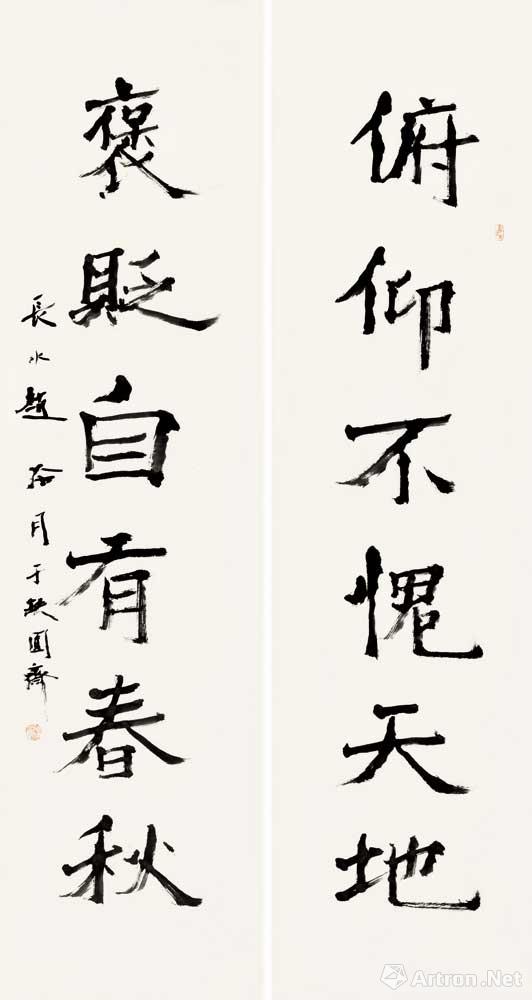 俯仰不愧天地
褒贬自有春秋
長水趙拾月于缺圓齋
Artron.Net